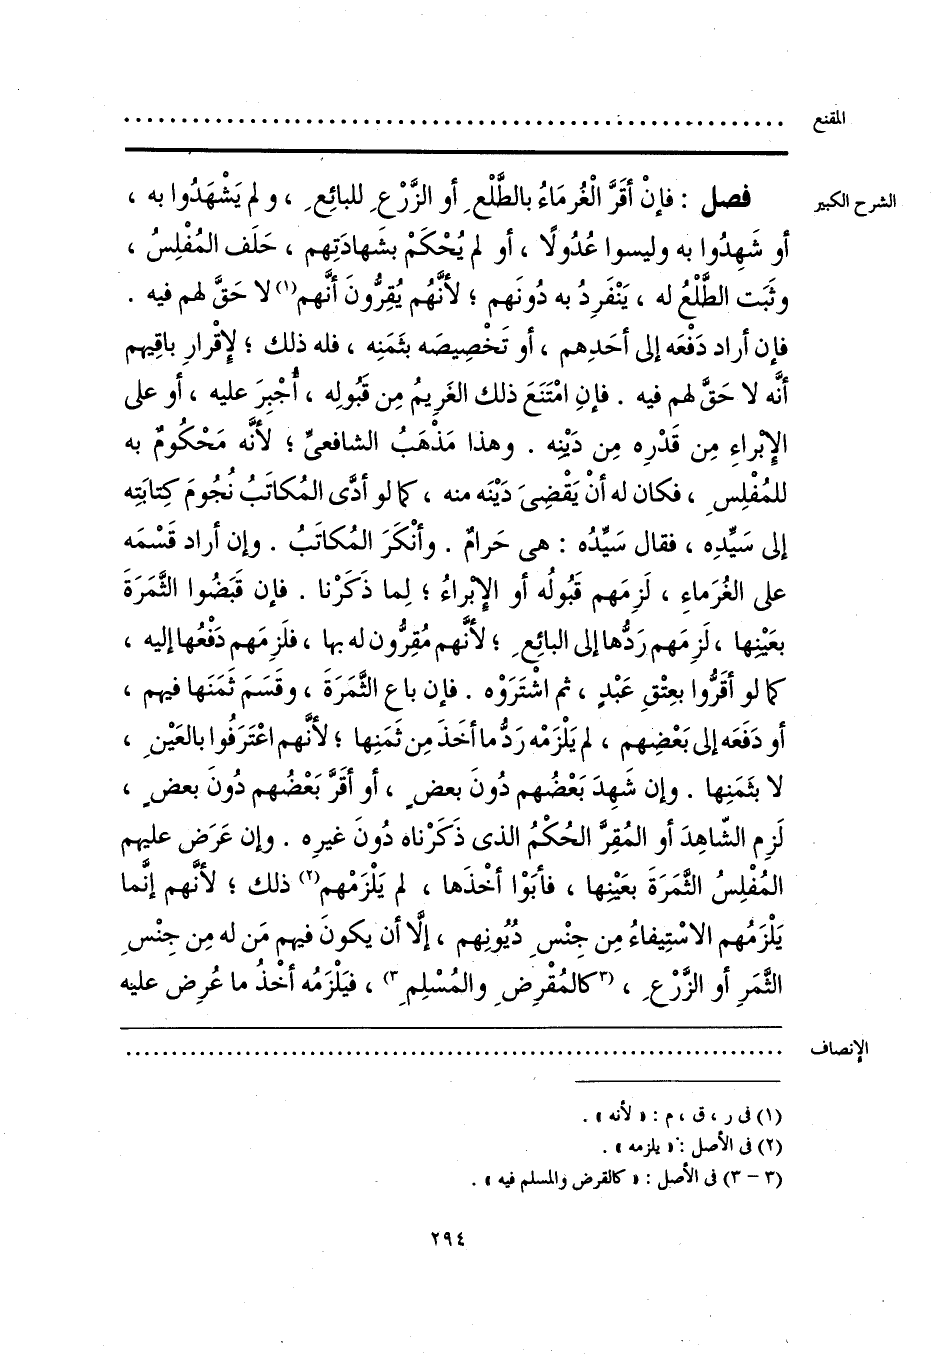 المقنع ......................................................................
الشرح الكبير فصل : فإنْ أقَرَّ الْغُرمَاءُ بالطَّلْعِ أو الزَّرْعِ للبائِعِ ، ولم يَشْهَدُوا به ،
أو شَهِدُوا به وليسوا عُدُولًا ، أو لم يُحْكَمْ بشَهادَتِهم ، حَلَف المُفْلِسُ ،
وثَبَت الطَّلْعُ له ، يَنْفَرِدُ به دُونَهم ؛ لأنَّهُم يُقِرُّونَ أنَّهم(١) لا حَقَّ لهم فيه .
فإن أراد دَفْعَه إلى أحَدِهم ، أو تَخْصِيصَه بثَمَنِه ، فله ذلك ؛ لإِقْرارِ باقِيهم
أنَّه لا حَقَّ لهم فيه . فإنِ امْتَنَعَ ذلك الغَرِيمُ مِن قَبُولِه ، أُجْبِرَ عليه ، أو على
الإِبْراءِ مِن قَدْرِه مِن دَيْنِه . وهذا مَذْهَبُ الشافعيِّ ؛ لأنَّه مَحْكُومٌ به
للمُفْلِسِ ، فكان له أنْ يَقْضِىَ دَيْنَه منه ، كما لو أدَّى المُكاتَبُ نُجُومَ كِتابَتِه
إلى سَيِّدِه ، فقال سَيِّدُه : هى حَرامٌ . وأنْكَرَ المُكاتَبُ . وإن أراد قَسْمَه
على الغُرَماءِ ، لَزِمَهم قَبُولُه أو الإِبْراءُ ؛ لِما ذَكَرْنا . فإن قَبَضُوا الثَّمَرَةَ
بعَيْنِها ، لَزِمَهم رَدُّها إلى البائِعِ ؛ لأنَّهم مُقِرُّون له بها ، فلَزِمَهم دَفْعُها إليه ،
كما لو أقَرُّوا بعِتْقِ عَبْدٍ ، ثم اشْتَرَوْه . فإن باع الثَّمَرَةَ ، وقَسَمَ ثَمَنَها فيهم ،
أو دَفَعَه إلى بَعْضِهم ، لم يَلْزَمْه رَدُّ ما أخَذَ مِن ثَمَنِها ؛ لأنَّهم اعْتَرَفُوا بالعَيْنِ ،
لا بثَمَنِها . وإن شَهِدَ بَعْضُهم دُونَ بعضٍ ، أو أقَرَّ بَعْضُهم دُونَ بعضٍ ،
لَزِم الشّاهِدَ أو المُقِرَّ الحُكْمُ الذى ذَكَرْناه دُونَ غيرِه . وإن عَرَض عليهم
المُفْلِسُ الثَّمَرَةَ بعَيْنِها ، فأبَوْا أخْذَها ، لم يَلْزَمْهم(٢) ذلك ؛ لأنَّهم إنَّما
يَلْزَمُهم الاسْتِيفاءُ مِن جِنْسِ دُيُونِهم ، إلَّا أن يكونَ فيهم مَن له مِن جِنْسِ
الثَّمَرِ أو الزَّرْعِ ، (٣كالمُقْرِضِ والمُسْلِمِ٣) ، فيَلْزَمُه أخْذُ ما عُرِض عليه
الإنصاف ......................................................................
(١) فى ر ، ق ، م : « لأنه » .
(٢) فى الأصل : « يلزمه » .
(٣ – ٣) فى الأصل : « كالقرض والمسلم فيه » .
٢٩٤